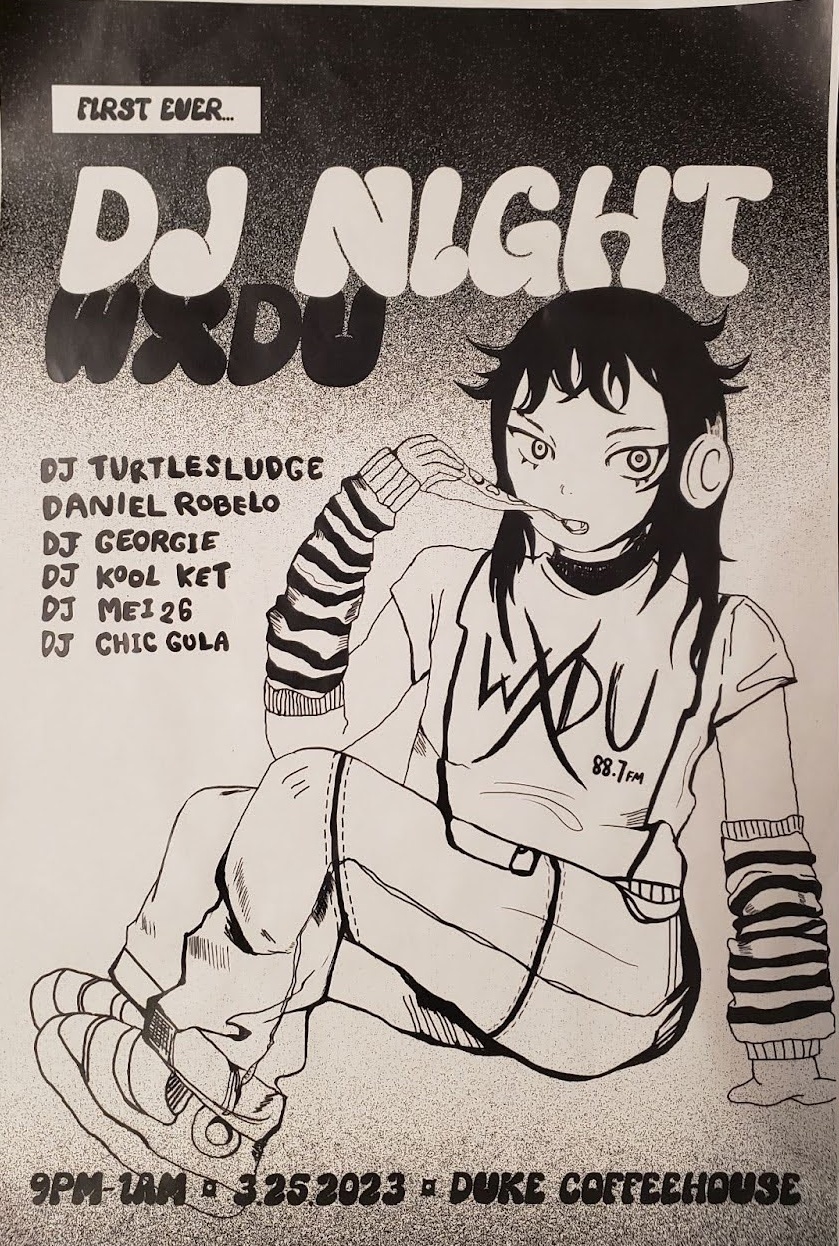 FIRST EVER...
DJ NIGHT
WXDU
DJ TURTLESLUDGE
DANIEL ROBELO
DJ GEORGIE
DJ KOOL KET
DJ MEI 26
DJ CHIC GULA
WXDU
88.7 FM
9PM-1AM ¤ 3.25.2023 ¤ DUKE COFFEEHOUSE